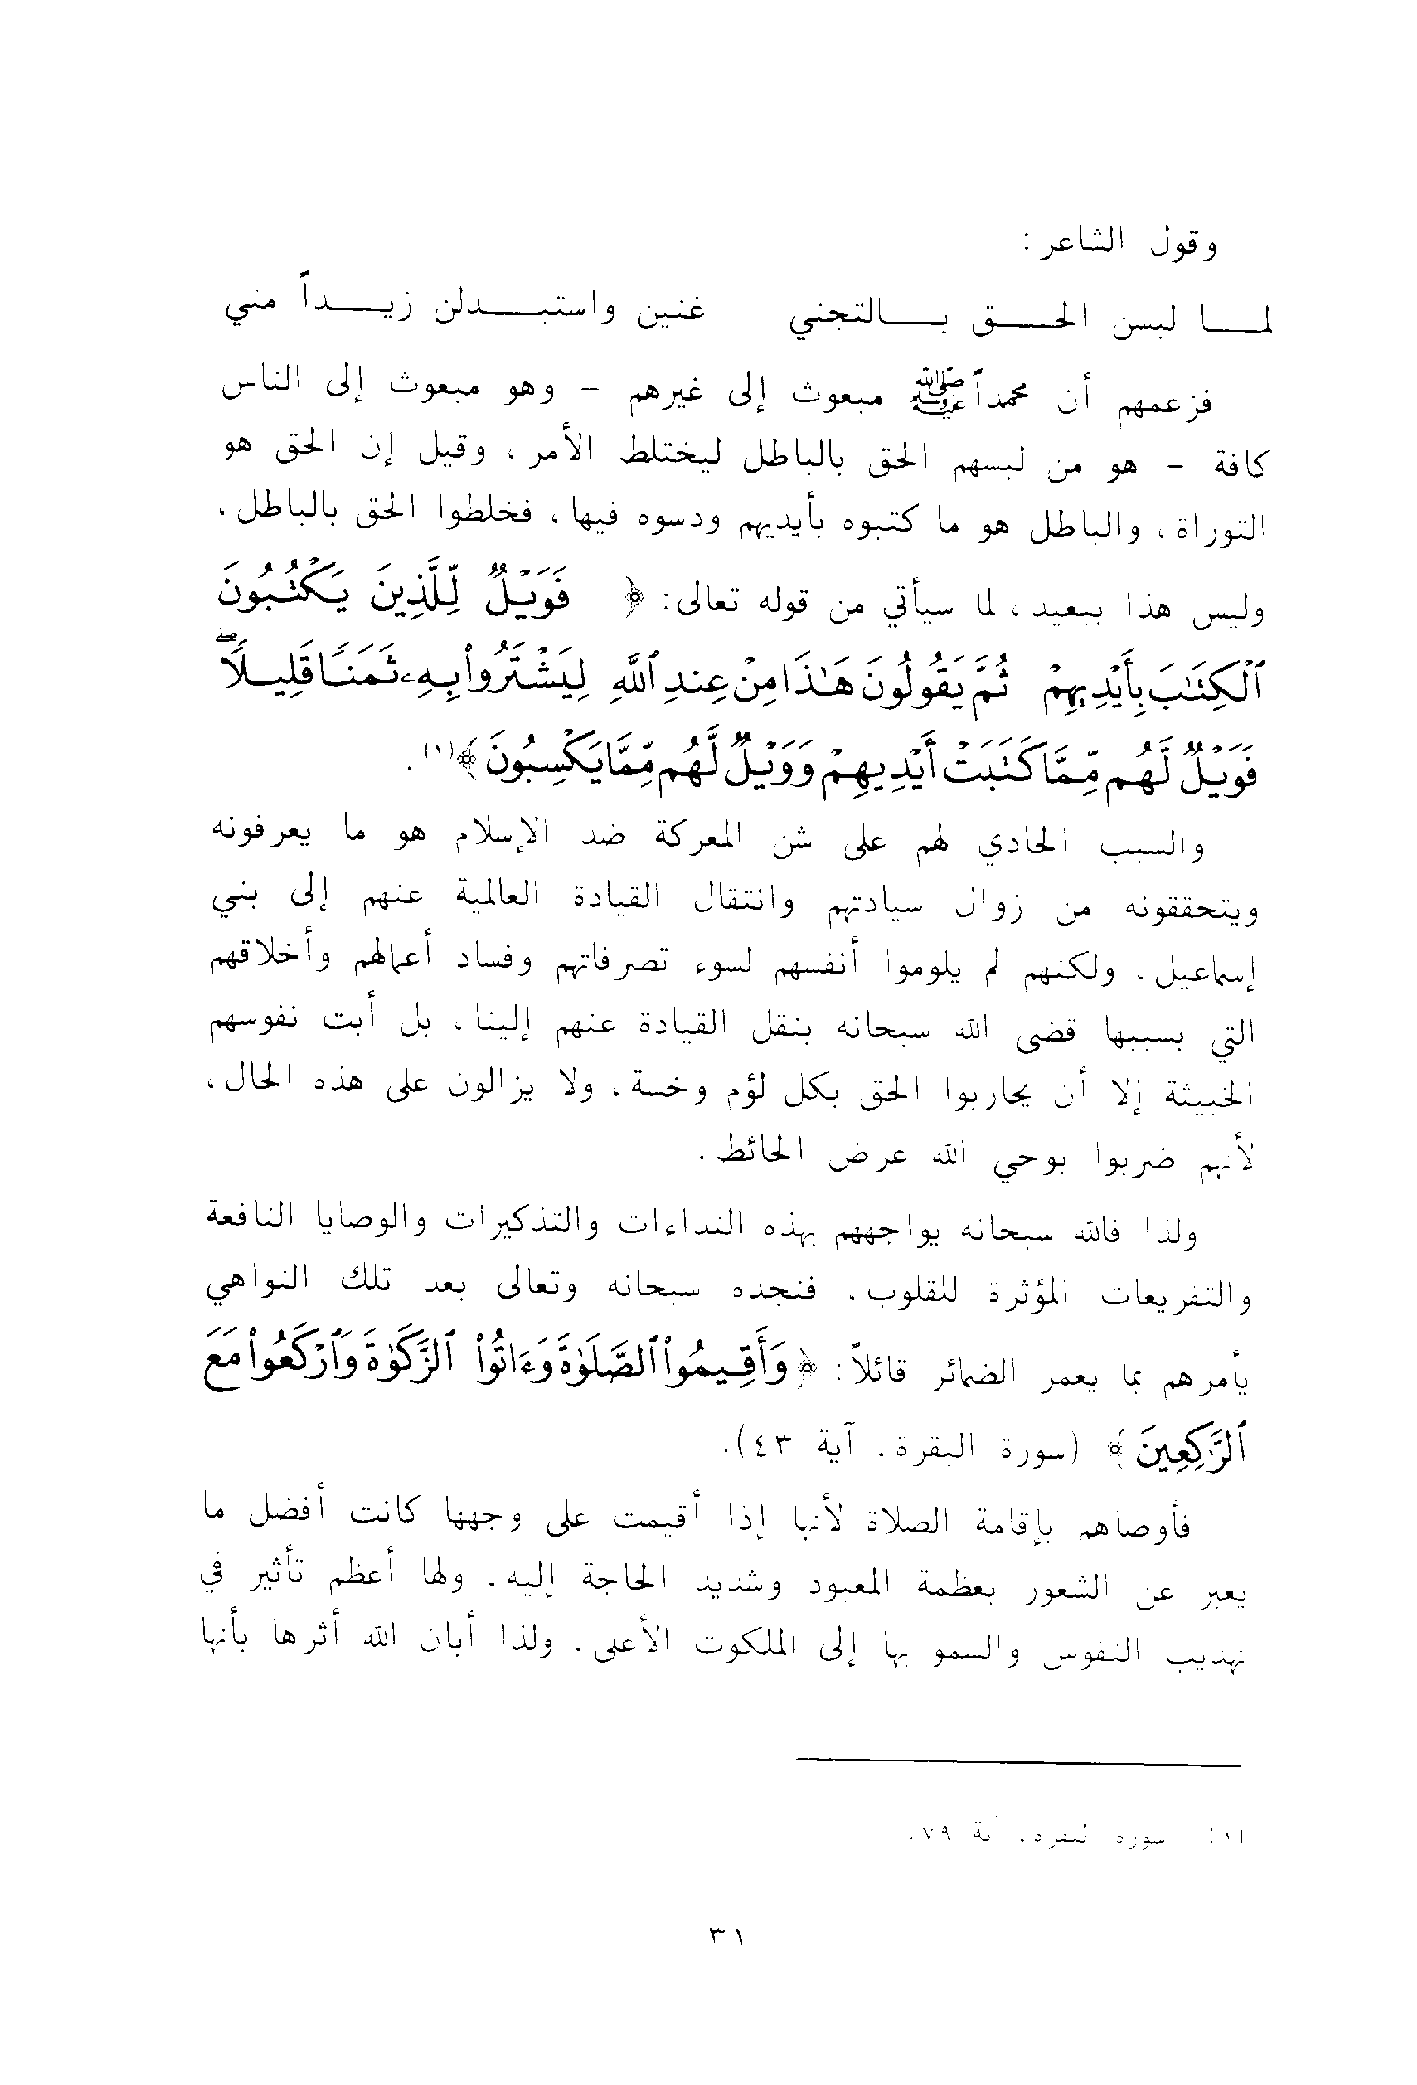 وقول الشاعر:
لمـا لبسن الحـق بـالتجني غنين واستبـدلن زيـداً مني
فزعمهم أن محمداً ﷺ مبعوث إلى غيرهم - وهو مبعوث إلى الناس
كافة - هو من لبسهم الحق بالباطل ليختلط الأمر، وقيل إن الحق هو
التوراة، والباطل هو ما كتبوه بأيديهم ودسوه فيها، فخلطوا الحق بالباطل،
وليس هذا ببعيد، لما سيأتي من قوله تعالى: ﴿ فَوَيْلٌ لِّلَّذِينَ يَكْتُبُونَ
ٱلْكِتَٰبَ بِأَيْدِيهِمْ ثُمَّ يَقُولُونَ هَٰذَا مِنْ عِندِ ٱللَّهِ لِيَشْتَرُوا۟ بِهِۦ ثَمَنًا قَلِيلًا ۖ
فَوَيْلٌ لَّهُم مِّمَّا كَتَبَتْ أَيْدِيهِمْ وَوَيْلٌ لَّهُم مِّمَّا يَكْسِبُونَ ﴾(١).
والسبب الحادي لهم على شن المعركة ضد الإسلام هو ما يعرفونه
ويتحققونه من زوال سيادتهم وانتقال القيادة العالمية عنهم إلى بني
إسماعيل. ولكنهم لم يلوموا أنفسهم لسوء تصرفاتهم وفساد أعمالهم وأخلاقهم
التي بسببها قضى الله سبحانه بنقل القيادة عنهم إلينا، بل أبت نفوسهم
الخبيثة إلا أن يحاربوا الحق بكل لؤم وخسة، ولا يزالون على هذه الحال،
لأنهم ضربوا بوحي الله عرض الحائط.
ولذا فالله سبحانه يواجههم بهذه النداءات والتذكيرات والوصايا النافعة
والتفريعات المؤثرة للقلوب. فنجده سبحانه وتعالى بعد تلك النواهي
يأمرهم بما يعمر الضمائر قائلاً: ﴿ وَأَقِيمُوا۟ ٱلصَّلَوٰةَ وَءَاتُوا۟ ٱلزَّكَوٰةَ وَٱرْكَعُوا۟ مَعَ
ٱلرَّٰكِعِينَ ﴾ (سورة البقرة. آية ٤٣).
فأوصاهم بإقامة الصلاة لأنها إذا أقيمت على وجهها كانت أفضل ما
يعبر عن الشعور بعظمة المعبود وشديد الحاجة إليه. ولها أعظم تأثير في
تهذيب النفوس والسمو بها إلى الملكوت الأعلى. ولذا أبان الله أثرها بأنها
(١) سورة البقرة، آية ٧٩.
٣١